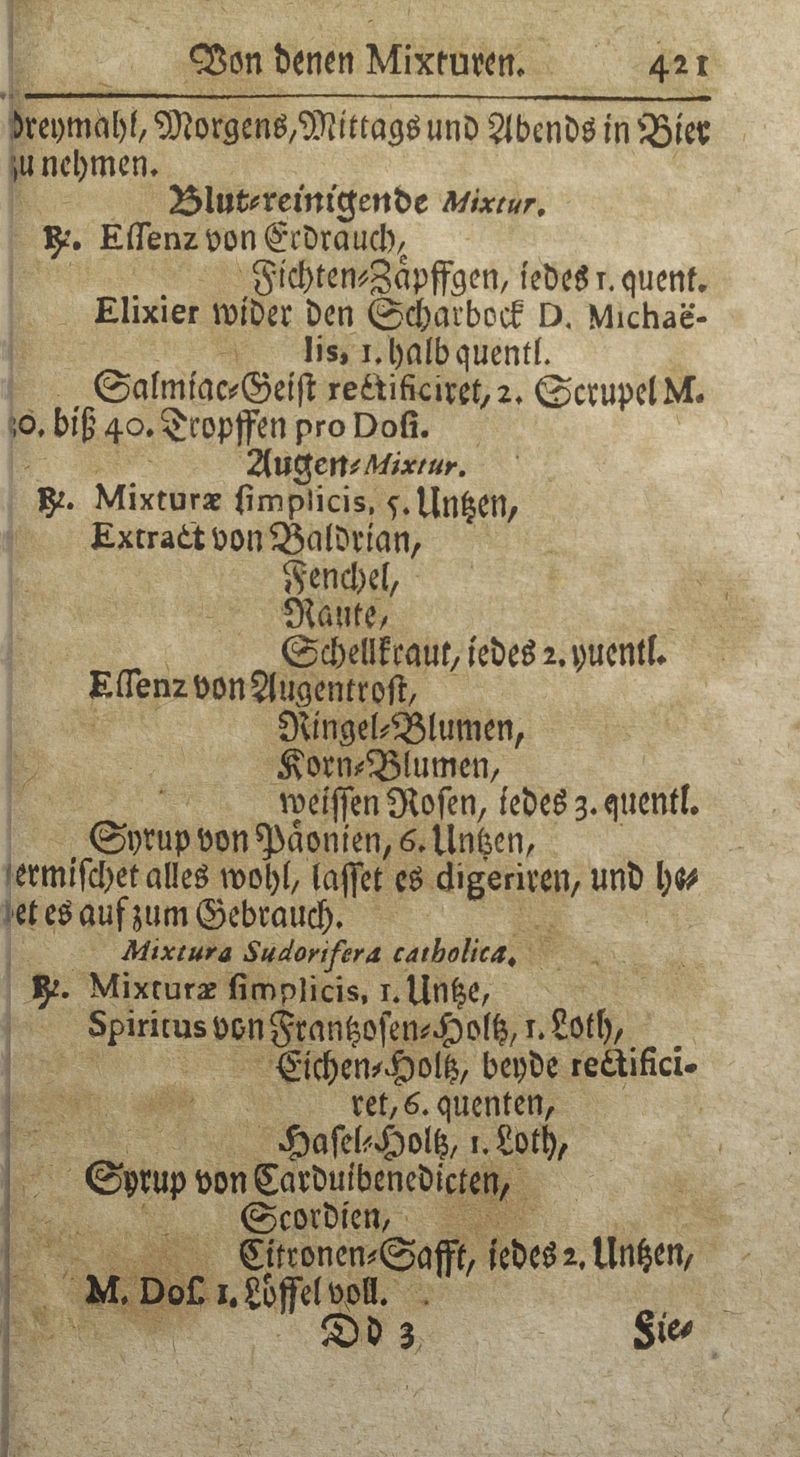 Von denen Mixturen. 421
dreymahl, Morgens, Mittags und Abends in Bier
zu nehmen.
Blut-reinigende Mixtur.
℞. Essenz von Erdrauch,
Fichten-Zäpffgen, iedes 1. quent.
Elixier wider den Scharbock D. Michaë-
lis, 1. halb quentl.
Salmiac-Geist rectificiret, 2. Scrupel M.
30. biß 40. Tropffen pro Dosi.
Augen-Mixtur.
℞. Mixturæ simplicis, 5. Untzen,
Extract von Baldrian,
Fenchel,
Raute,
Schellkraut, iedes 2. quentl.
Essenz von Augentrost,
Ringel-Blumen,
Korn-Blumen,
weissen Rosen, iedes 3. quentl.
Syrup von Päonien, 6. Untzen,
ermischet alles wohl, lasset es digeriren, und he-
et es auf zum Gebrauch.
Mixtura Sudorifera catholica.
℞. Mixturæ simplicis, 1. Untze,
Spiritus von Frantzosen-Holtz, 1. Loth,
Eichen-Holtz, beyde rectifici-
ret, 6. quenten,
Hasel-Holtz, 1. Loth,
Syrup von Carduibenedicten,
Scordien,
Citronen-Safft, iedes 2. Untzen,
M. Dos. 1. Löffel voll.
Dd 3 Sie-